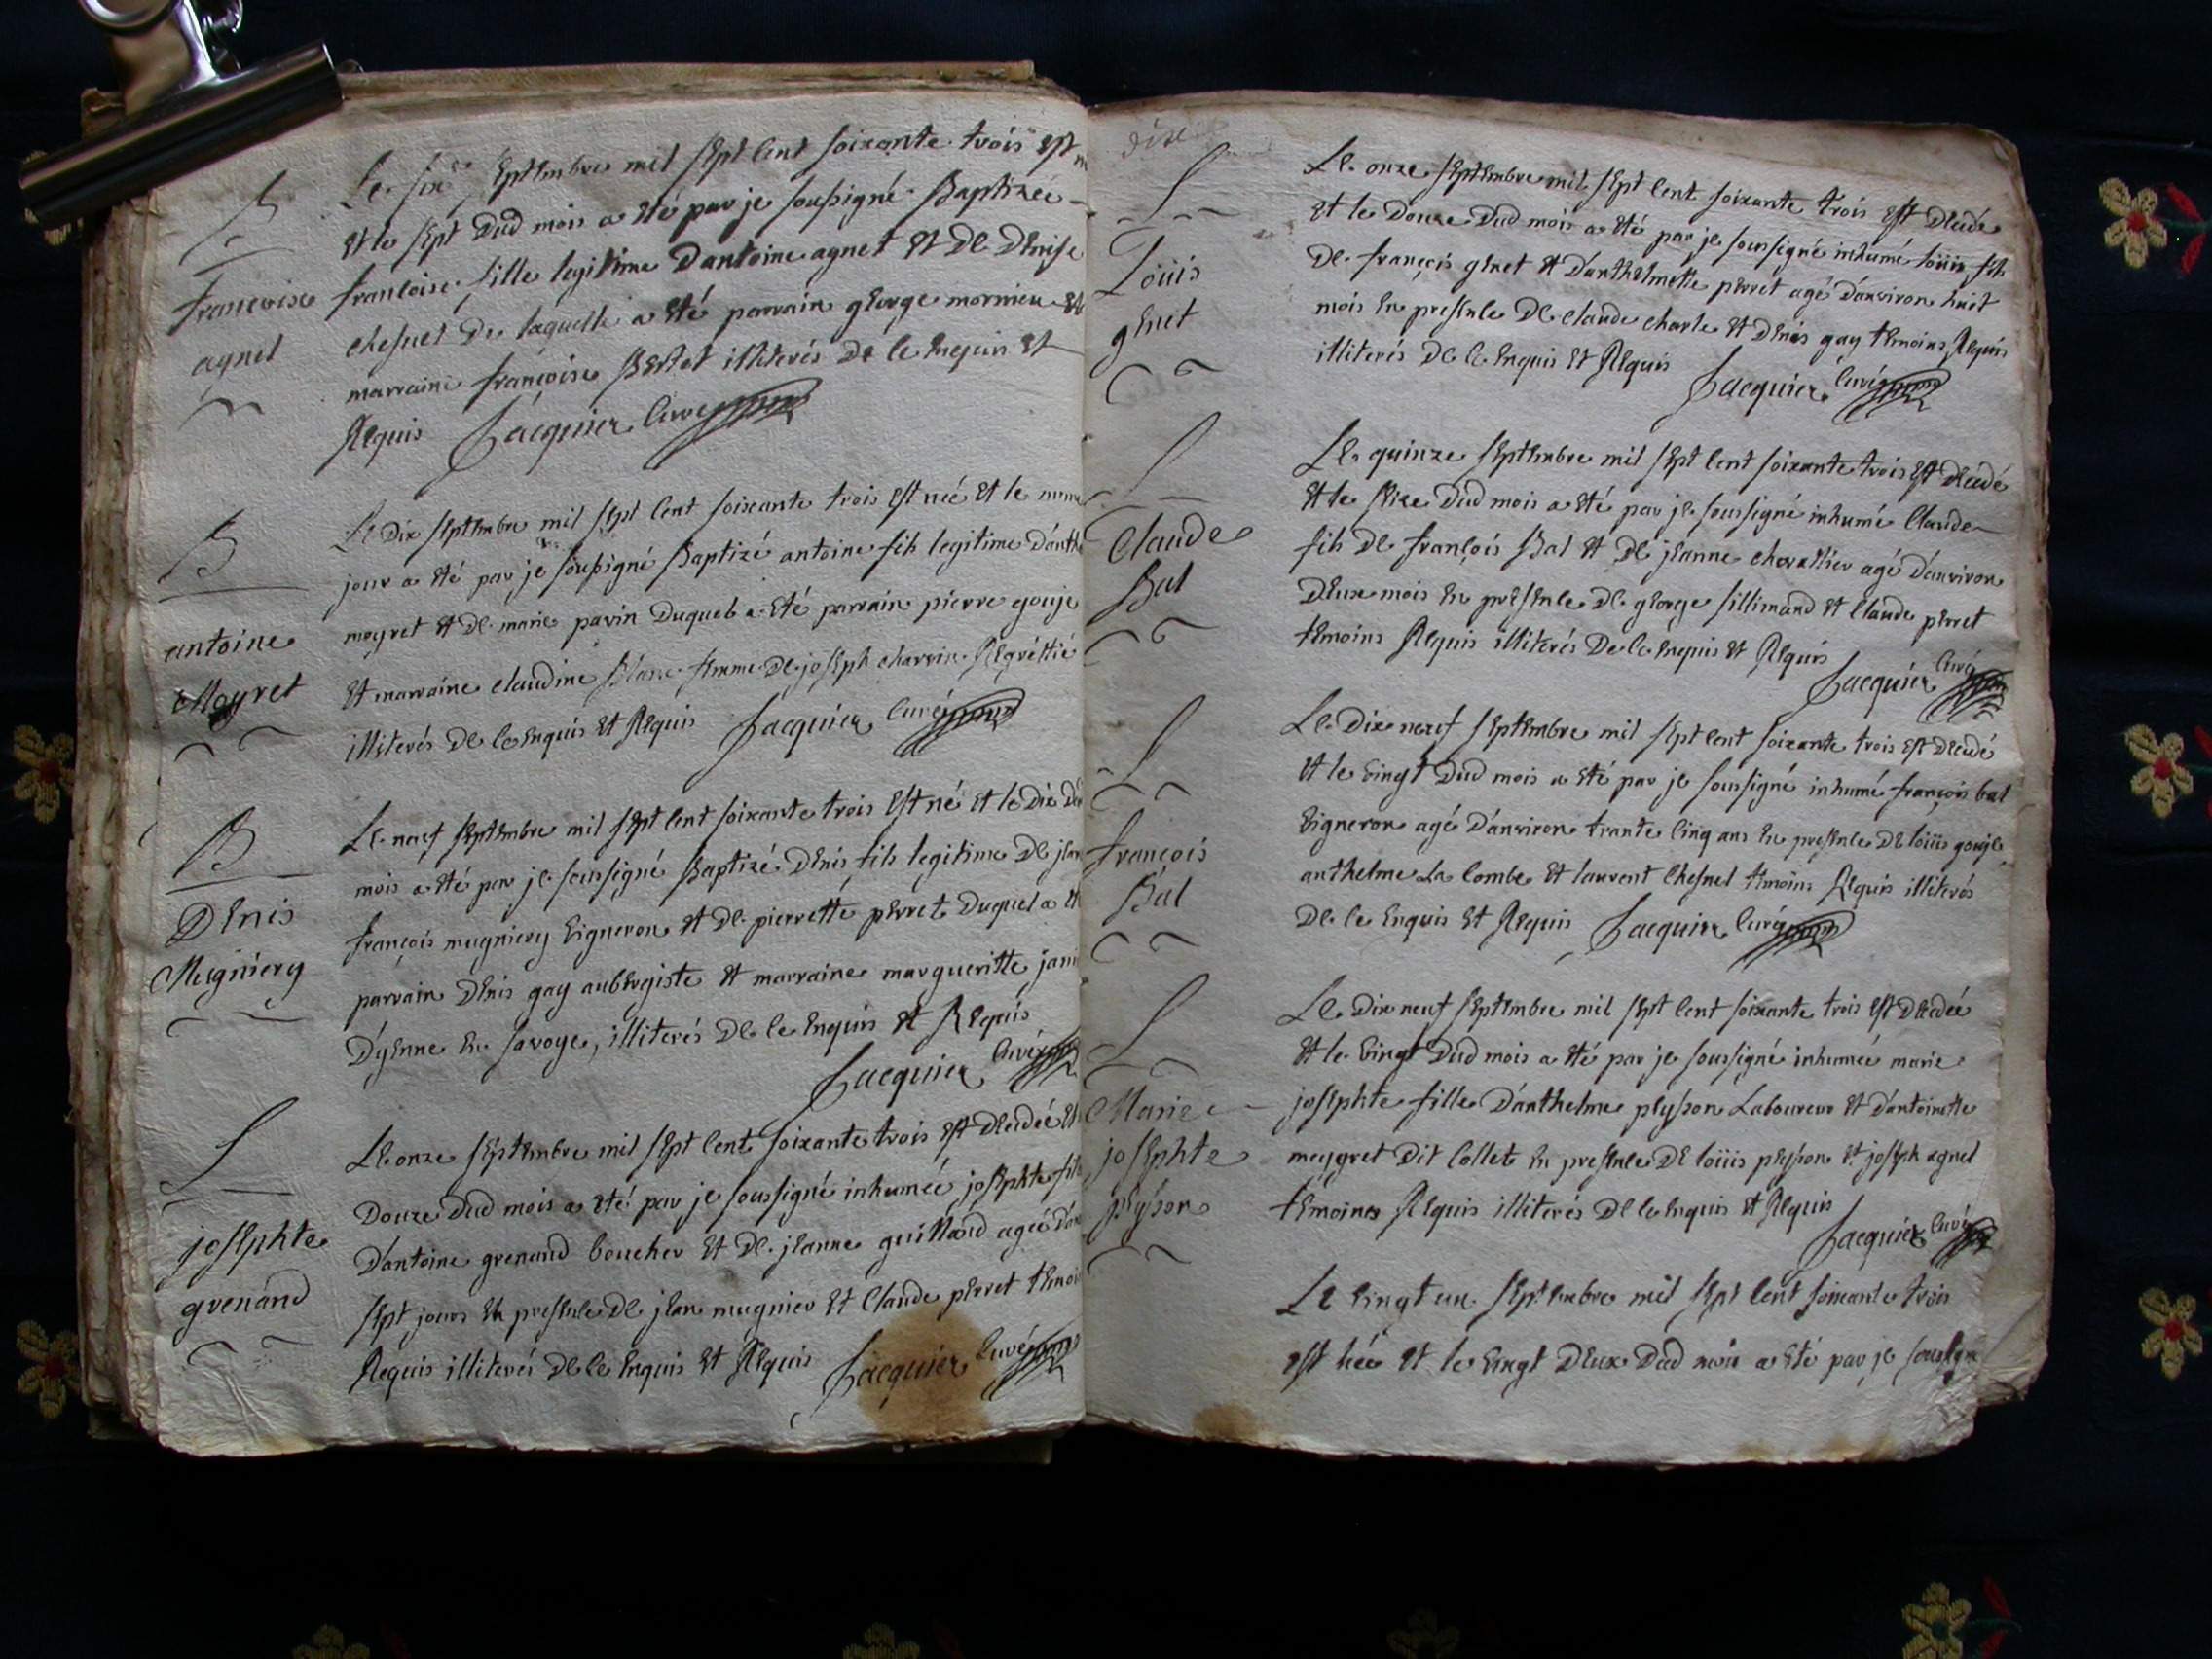 B
françoise
agnel
Le six septembre mil sept cent soixante trois est
et le sept dud mois a eté par je soussigné Baptizée
françoise fille legitime Dantoine agnet et de Denise
chesnet de laquelle a eté parrain george mornieu et
marraine françoise Bertet illiterés de ce enquis et
Requis Jacquier Curé
B
antoine
Meyret
Le Dix septembre mil sept cent soixante trois est neé et le meme
jour a eté par je soussigné Baptizé antoine fils legitime
meyret et de marie pavin Duqueb a eté parrain pierre gouje
et marraine claudine Blanc femme de joseph charvin
illiterés de ce enquis et Requis Jacquier curé
B
Denis
Mugniery
Le neuf septembre mil sept cent soixante trois est né et le dix
mois a eté par je soussigné Baptizé Denis fils legitime de
françois mugniery vigneron et de pierrette perret Duquel a
parrain Denis gay aubergiste et marraine margueritte
D'yenne en savoye, illiterés de ce enquis et Requis
Jacquier Curé
S
josephte
grenand
Le onze septembre mil sept cent soixante trois est decedeé et
Douze dud mois a eté par je soussigné inhumeé josephte
D'antoine grenand boucher et de jeanne guilland ageé
sept jours en presence de jean mugnier et Claude perret
Requis illiterés de ce enquis et Requis Jacquier Curé
S
Loüis
genet
Le onze septembre mil sept cent soixante trois est decedé
et le Douze dud mois a eté par je soussigné inhumé loüis fils
de françois genet et D'anthelmette perret agé D'anviron huit
mois en presence de claude charle et Denis gay temoins Requis
illiterés de ce enquis et Requis Jacquier Curé
S
Claude
Bal
Le quinze septembre mil sept cent soixante trois est decedé
et le seize dud mois a eté par je soussigné inhumé Claude
fils de françois Bal et de jeanne chevallier agé D'anviron
Deux mois en presence de george sillimand et Claude perret
temoins Requis illiterés de ce enquis et Requis
Jacquier Curé
S
françois
Bal
Le Dix neuf septembre mil sept cent soixante trois est decedé
et le vingt dud mois a eté par je soussigné inhumé françois bal
vigneron agé D'anviron trante cinq ans en presence de loüis gouje
anthelme La Combe et laurent Chesnel temoins Requis illiterés
de ce enquis et Requis Jacquier Curé
S
Marie
josephte
peysson
Le Dix neuf septembre mil sept cent soixante trois est decedeé
et le vingt dud mois a eté par je soussigné inhumeé marie
josephte fille D'anthelme peysson Laboureur et d'antoinette
meygret dit Collet en presence de loüis peysson et joseph agnel
temoins Requis illiterés de ce enquis et Requis
Jacquier Curé
Le vingt un septembre mil sept cent soixante trois
est née et le vingt deux dud mois a eté par je soussigné